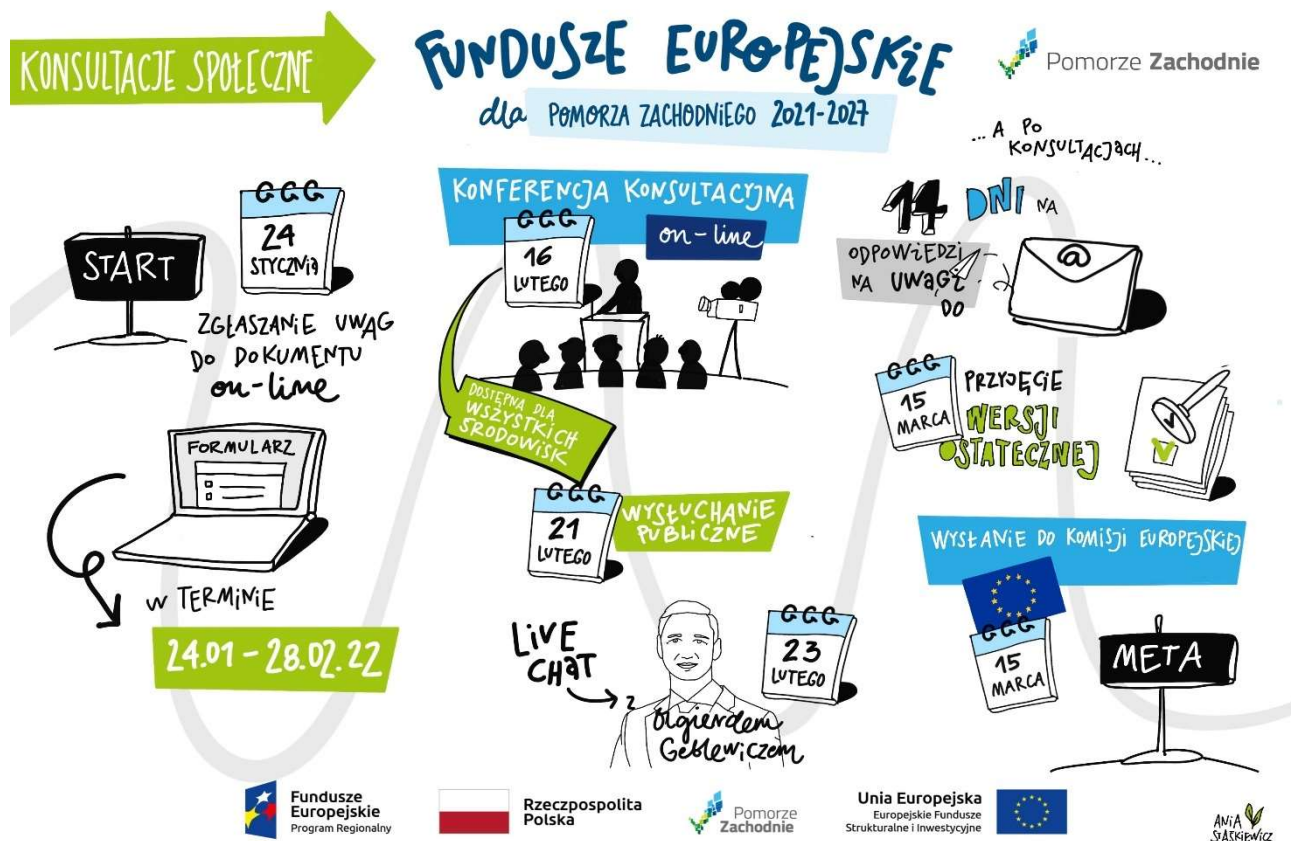 KONSULTACJE SPOŁECZNE
FUNDUSZE EUROPEJSKIE
dla POMORZA ZACHODNIEGO 2021-2027
Pomorze Zachodnie
START
24
STYCZNIA
ZGŁASZANIE UWAG
DO DOKUMENTU
on-line
FORMULARZ
W TERMINIE
24.01 – 28.02.22
KONFERENCJA KONSULTACYJNA
on-line
16
LUTEGO
DOSTĘPNA DLA
WSZYSTKICH
ŚRODOWISK
21
LUTEGO
WYSŁUCHANIE
PUBLICZNE
LIVE
CHAT
z
Olgierdem
Geblewiczem
23
LUTEGO
... A PO
KONSULTACJACH...
14 DNI NA
ODPOWIEDZI
NA UWAGI
DO
@
15
MARCA
PRZYJĘCIE
WERSJI
OSTATECZNEJ
WYSŁANIE DO KOMISJI EUROPEJSKIEJ
15
MARCA
META
Fundusze
Europejskie
Program Regionalny
Rzeczpospolita
Polska
Pomorze
Zachodnie
Unia Europejska
Europejskie Fundusze
Strukturalne i Inwestycyjne
ANIA
STAŚKIEWICZ